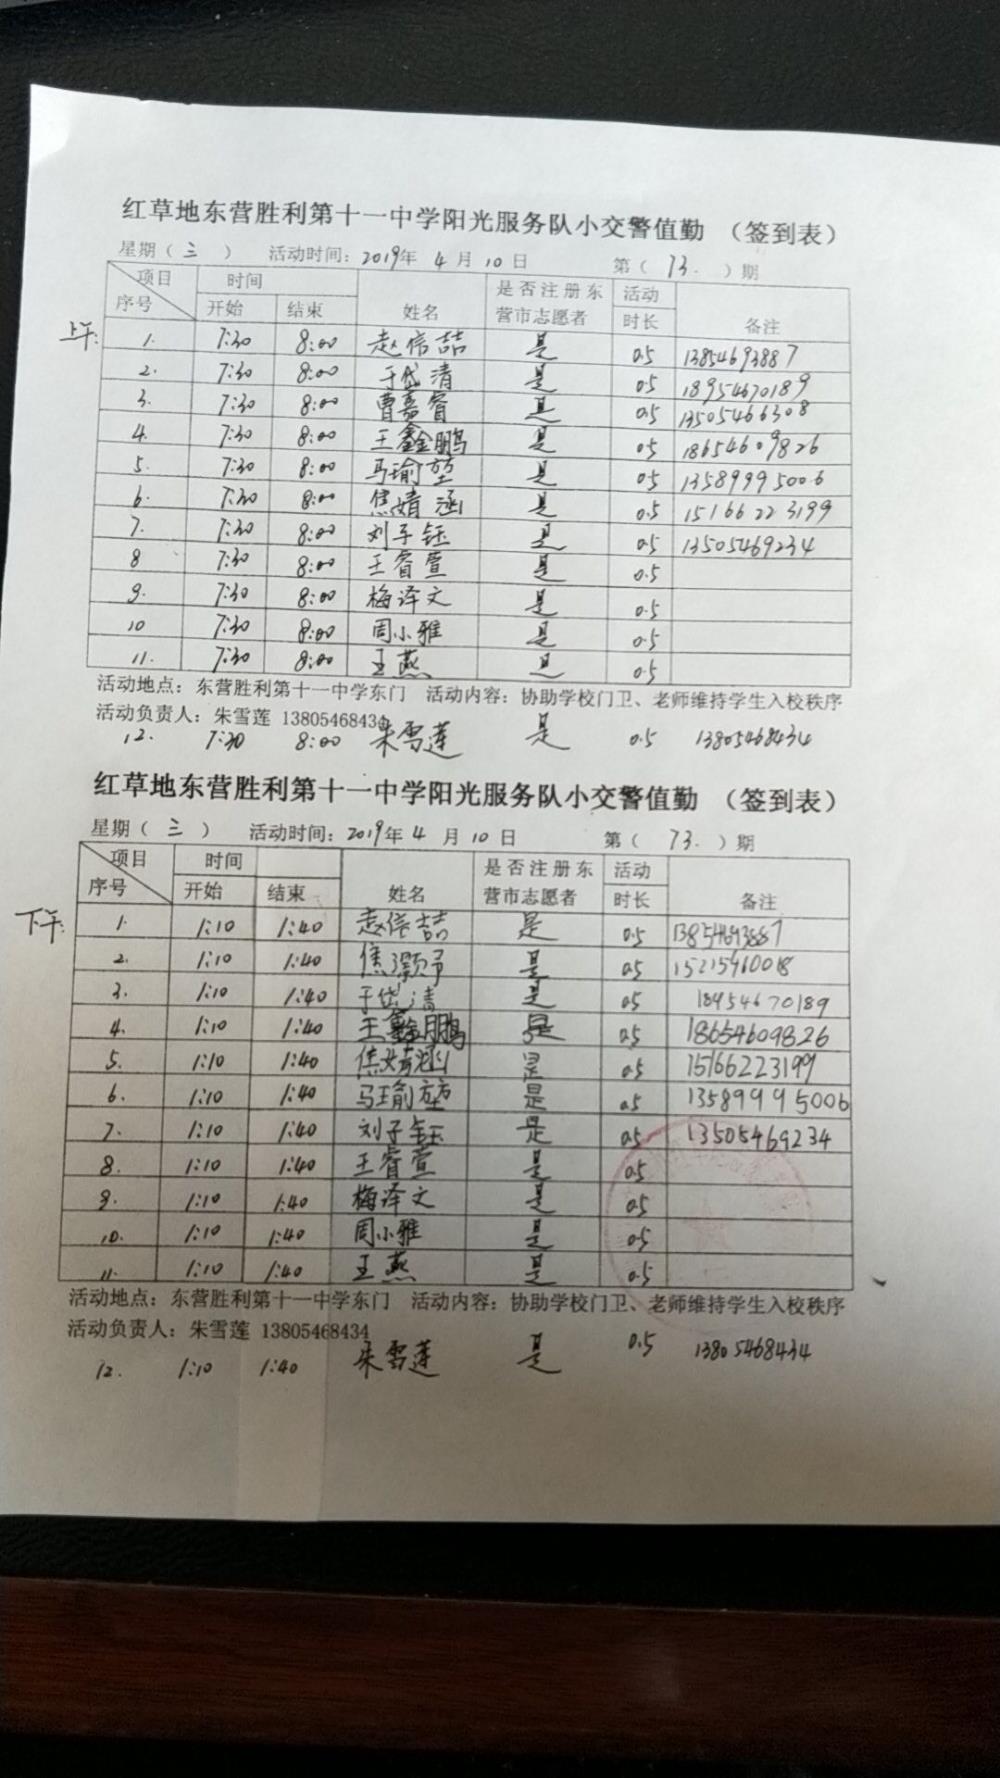 红草地东营胜利第十一中学阳光服务队小交警值勤 （签到表）
星期（ 三 ） 活动时间：2019年 4 月 10 日 第（ 73. ）期
项目 时间 是否注册东 活动
序号 开始 结束 姓名 营市志愿者 时长 备注
上午: 1. 7:30 8:00 赵信喆 是 0.5 13854693887
2. 7:30 8:00 于岱清 是 0.5 18954670189
3. 7:30 8:00 曹嘉睿 是 0.5 13505466308
4. 7:30 8:00 王鑫鹏 是 0.5 18654609826
5. 7:30 8:00 马瑜堃 是 0.5 13589995006
6. 7:30 8:00 焦婧涵 是 0.5 15166223199
7. 7:30 8:00 刘子钰 是 0.5 13505469234
8 7:30 8:00 王睿萱 是 0.5
9. 7:30 8:00 梅泽文 是 0.5
10 7:30 8:00 周小雅 是 0.5
11. 7:30 8:00 王燕 是 0.5
活动地点：东营胜利第十一中学东门 活动内容：协助学校门卫、老师维持学生入校秩序
活动负责人：朱雪莲 13805468434
12. 7:30 8:00 朱雪莲 是 0.5 13805468434
红草地东营胜利第十一中学阳光服务队小交警值勤 （签到表）
星期（ 三 ） 活动时间：2019年 4 月 10 日 第（ 73. ）期
项目 时间 是否注册东 活动
序号 开始 结束 姓名 营市志愿者 时长 备注
下午: 1. 1:10 1:40 赵信喆 是 0.5 13854693887
2. 1:10 1:40 焦灏予 是 0.5 15215460018
3. 1:10 1:40 于岱清 是 0.5 18954670189
4. 1:10 1:40 王鑫鹏 是 0.5 18654609826
5. 1:10 1:40 焦婧涵 是 0.5 15166223199
6. 1:10 1:40 马瑜堃 是 0.5 13589995006
7. 1:10 1:40 刘子钰 是 0.5 13505469234
8. 1:10 1:40 王睿萱 是 0.5
9. 1:10 1:40 梅泽文 是 0.5
10. 1:10 1:40 周小雅 是 0.5
11. 1:10 1:40 王燕 是 0.5
活动地点：东营胜利第十一中学东门 活动内容：协助学校门卫、老师维持学生入校秩序
活动负责人：朱雪莲 13805468434
12. 1:10 1:40 朱雪莲 是 0.5 13805468434